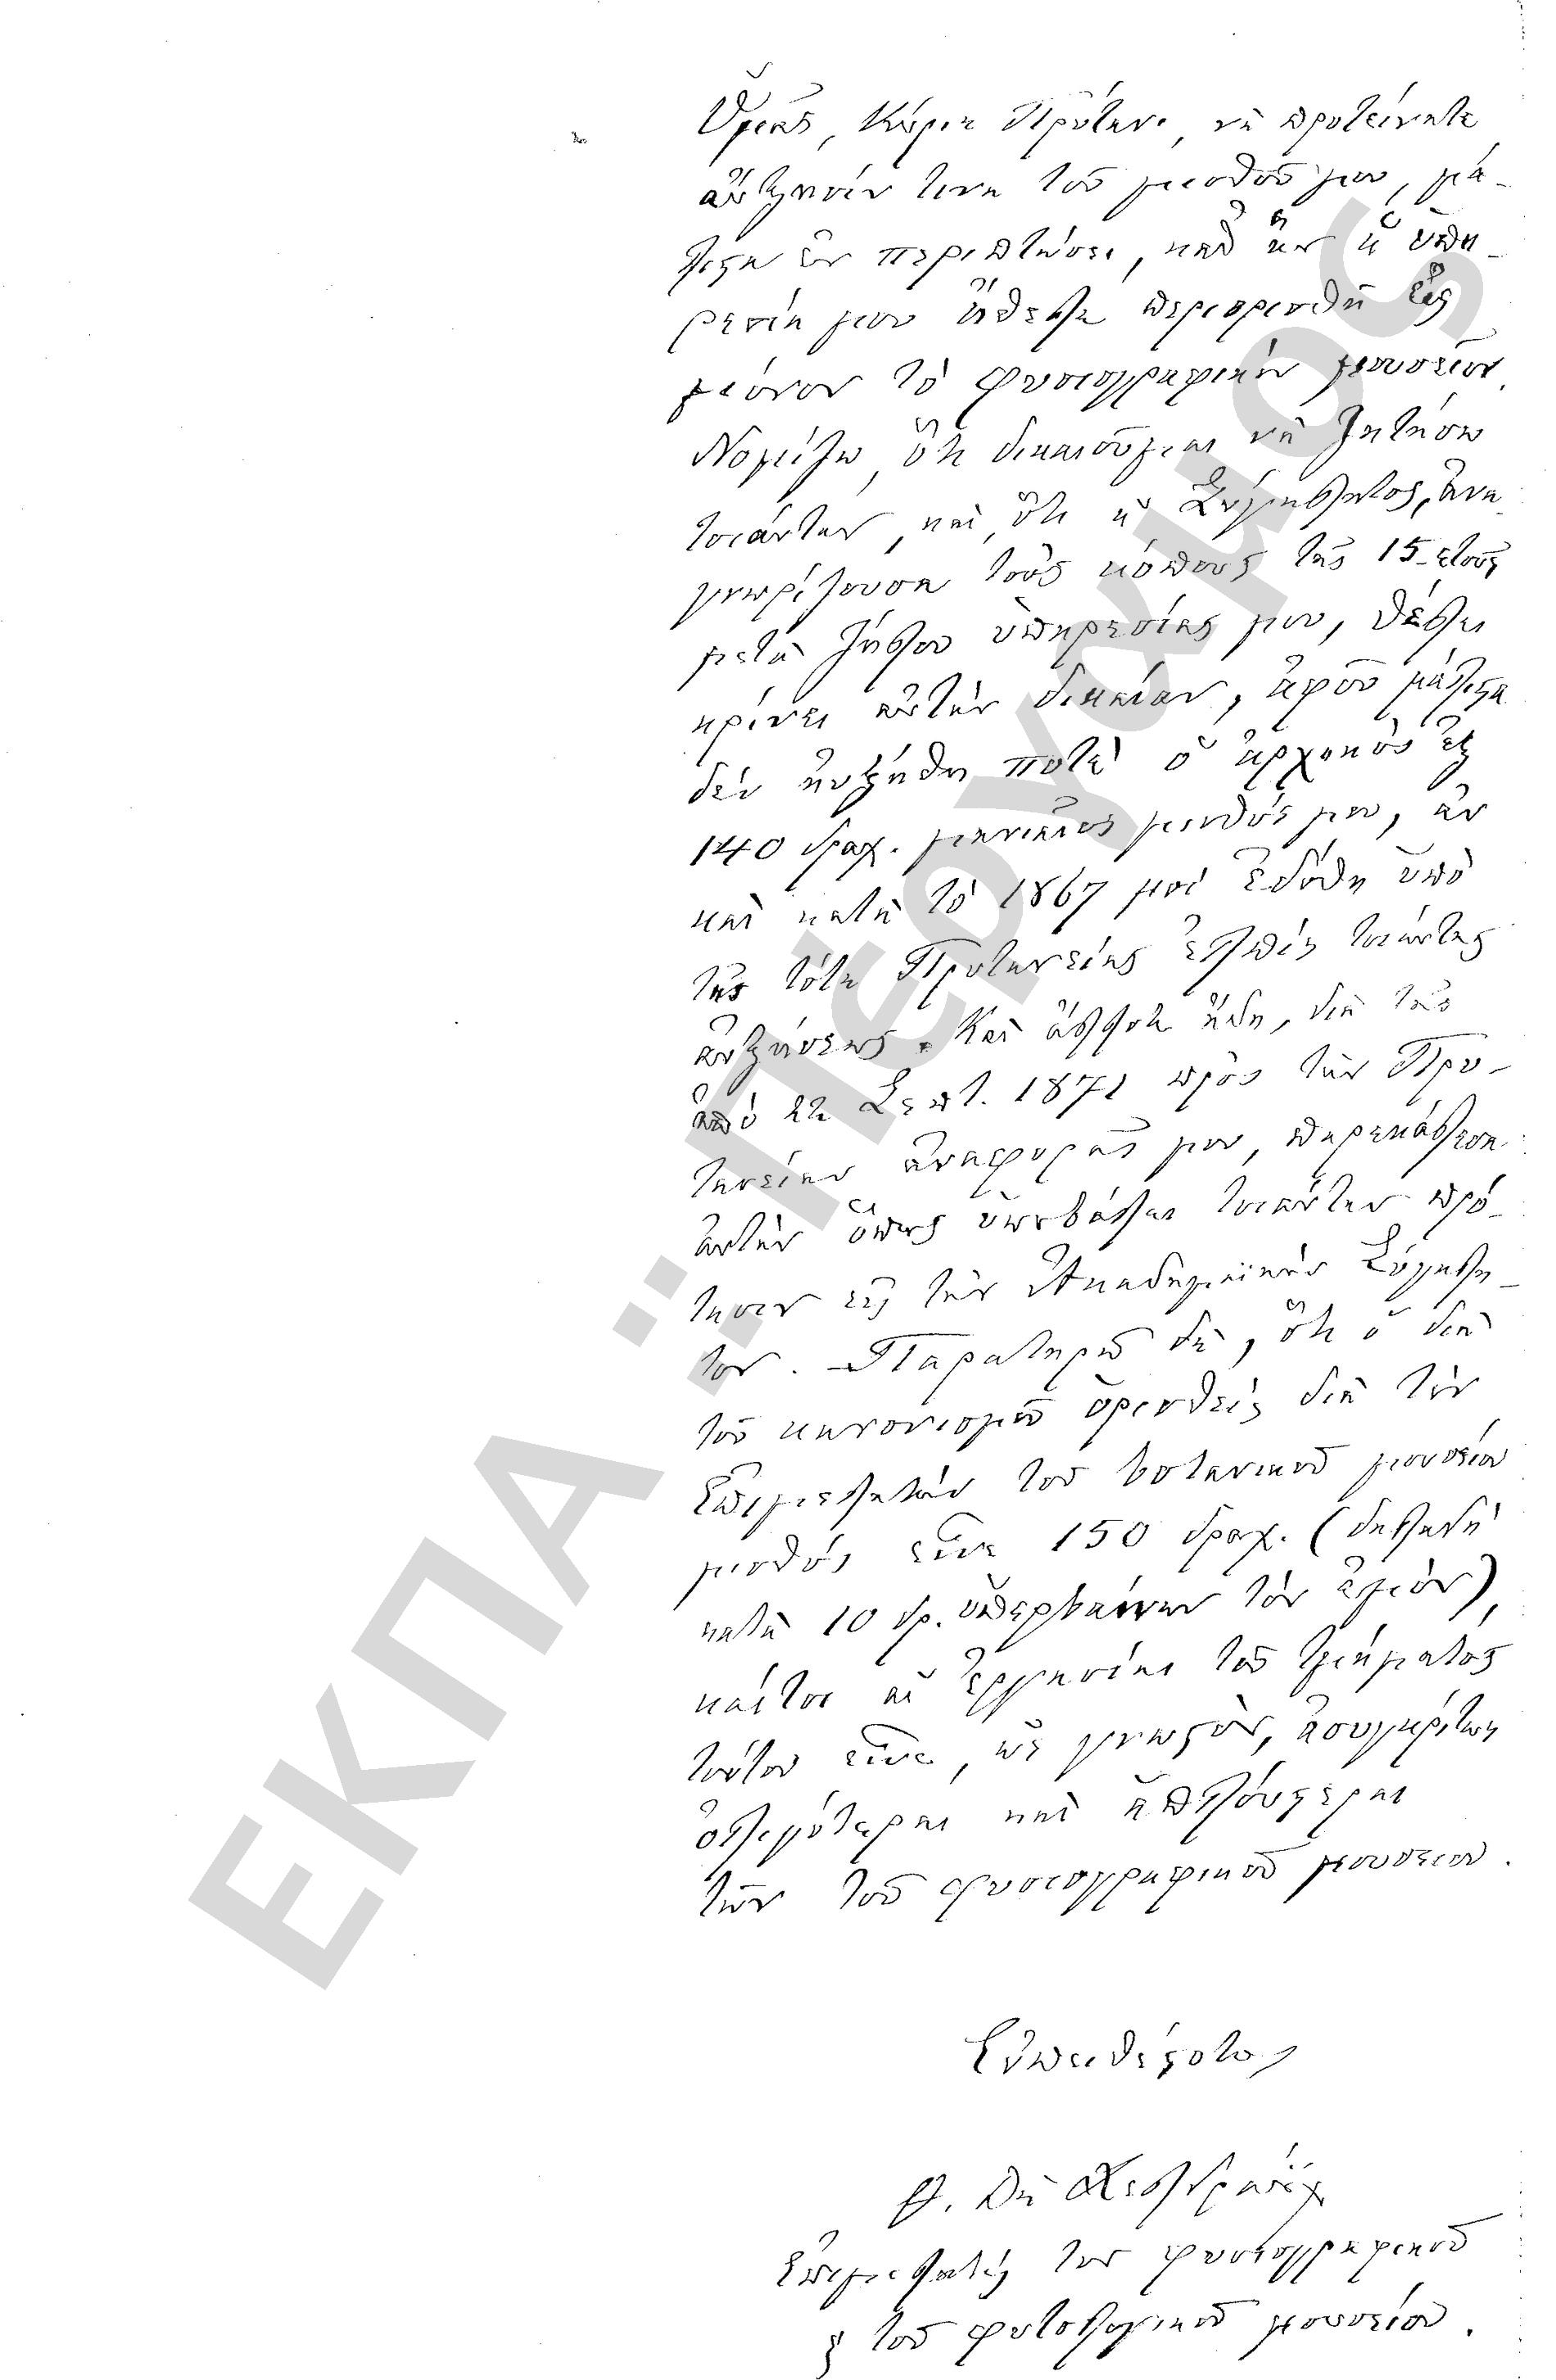 Ὑμᾶς, Κύριε Πρύτανι, νὰ προτείνητε
αὔξησίν τινα τοῦ μισθοῦ μου, μά-
λιστα ἐν περιπτώσει, καθ' ἣν ἡ ὑπη-
ρεσία μου ἤθελε περιορισθῆ εἰς
μόνον τὸ φυσιογραφικὸν μουσεῖον.
Νομίζω, ὅτι δικαιοῦμαι νὰ ζητήσω
τοιαύτην, καὶ ὅτι ἡ Σύγκλητος, ἀνα
γνωρίζουσα τοὺς κόπους τῆς 15-ετοῦς
μετὰ ζήλου ὑπηρεσίας μου, θέλει
κρίνει αὐτὴν δικαίαν, ἀφοῦ μάλιστα
δὲν ηὐξήθη ποτὲ ὁ ἀρχικὸς ἐξ
140 δραχ. μηνιαῖος μισθός μου, ἂν
καὶ κατὰ τὸ 1867 μοὶ ἐδόθη ὑπὸ
τῆς τότε Πρυτανείας ἐλπὶς τοιαύτης
αὐξήσεως. Καὶ ἄλλοτε ἤδη, διὰ τῆς
ἀπὸ 22 Σεπτ. 1871 πρὸς τὴν Πρυ-
τανείαν ἀναφορᾶς μου, παρεκάλεσα
αὐτὴν ὅπως ὑποβάλῃ τοιαύτην πρό-
τασιν εἰς τὴν Ἀκαδημαϊκὴν Σύγκλη-
τον. Παρατηρῶ δὲ, ὅτι ὁ διὰ
τοῦ κανονισμοῦ ὁρισθεὶς διὰ τὸν
Ἐπιμελητὴν τοῦ βοτανικοῦ μουσείου
μισθός εἶνε 150 δραχ. (δηλαδὴ
κατὰ 10 δρ. ὑπερβαίνων τὸν ἐμὸν),
καίτοι αἱ ἐργασίαι τοῦ τμήματος
τούτου εἶνε, ὡς γνωστὸν, ἀσυγκρίτως
ὀλιγώτεραι καὶ ἁπλούστεραι
τῶν τοῦ φυσιογραφικοῦ μουσείου.
Εὐπειθέστατος
Θ. Δὲ Χελδράιχ
Ἐπιμελητὴς τοῦ φυσιογραφικοῦ
καὶ τοῦ φυτολογικοῦ μουσείου.
ΕΚΠΑ Ϊ Πέργαμος